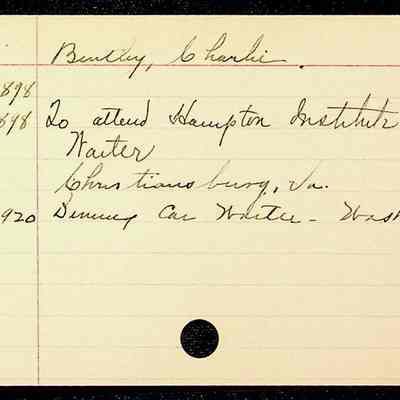 Bentley, Charlie.
898
898 To attend Hampton Institute
Waiter
Christiansburg, Va.
920 Dining Car Waiter - Wash